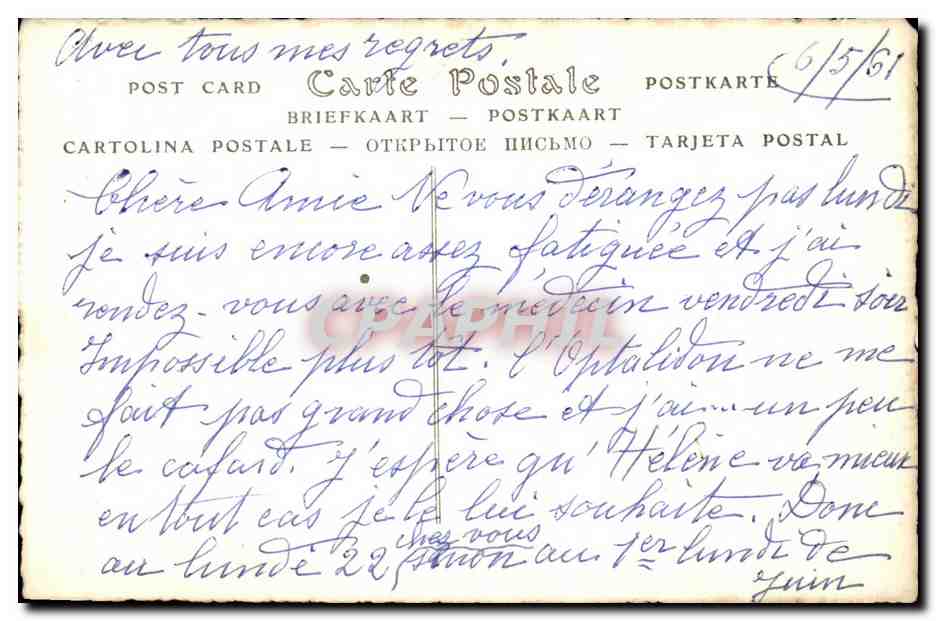 Avec tous mes regrets.
6/5/61
POST CARD Carte Postale POSTKARTE
BRIEFKAART — POSTKAART
CARTOLINA POSTALE — ОТКРЫТОЕ ПИСЬМО — TARJETA POSTAL
Chère Amie Ne vous dérangez pas lundi
je suis encore assez fatiguée et j'ai
rendez-vous avec le médecin vendredi soir
Impossible plus tôt. l'Optalidon ne me
fait pas grand chose et j'ai... un peu
le cafard. J'espère qu'Hélène va mieux
en tout cas je le lui souhaite. Donc
chez vous
au lundi 22, sinon au 1er lundi de
Juin
CPAPHIL